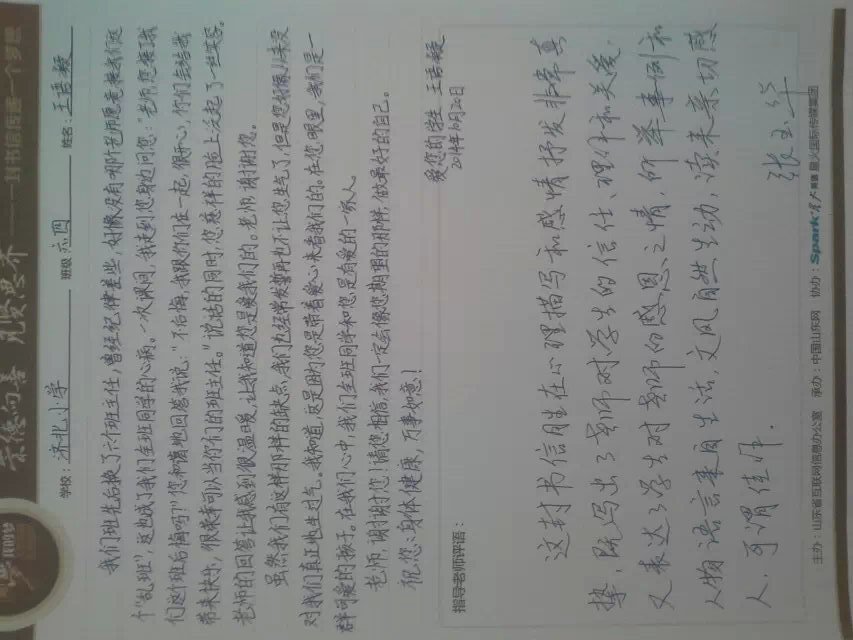 崇德向善 见贤思齐——一封书信传递一个梦想
我的梦
学校：济北小学 班级 六四 姓名：王语嫣
我们班先后换了六个班主任，曾经纪律差些，好像没有哪个老师愿意接我们这
个“乱班”，这也成了我们全班同学的心病。一次课间，我走到您身边问您：“老师，您接了我
们这个班后悔吗？”您和蔼地回答我说：“不后悔，我跟你们在一起，很开心，你们会给我
带来快乐，很荣幸可以当你们的班主任。”说话的同时，您慈祥的脸上泛起了一丝笑容。
老师的回答让我感到很温暖，让我知道您是爱我们的。老师，谢谢您。
虽然我们有这样那样的缺点，我们也经常发誓再也不让您生气了，但是您好像从来没
对我们真正地生过气。我知道，这是因为您是带着爱心来看我们的。在您眼里，我们是一
群可爱的孩子。在我们心中，我们全班同学和您是有爱的一家人。
老师，谢谢您！请您相信，我们一定会像您期望的那样，做最好的自己。
祝您：身体健康，万事如意！
爱您的学生 王语嫣
2014年10月20日
指导老师评语：
这封书信用生在心理描写和感情抒发非常真
挚，既写出了老师对学生的信任、理解和关爱，
又表达了学生对老师的感恩之情，所举事例和
人物语言来自生活，文风自然生动，读来亲切感
人，可谓佳作。
张玉华
主办：山东省互联网信息办公室 承办：中国山东网 协办：Spark 星火国际传媒集团